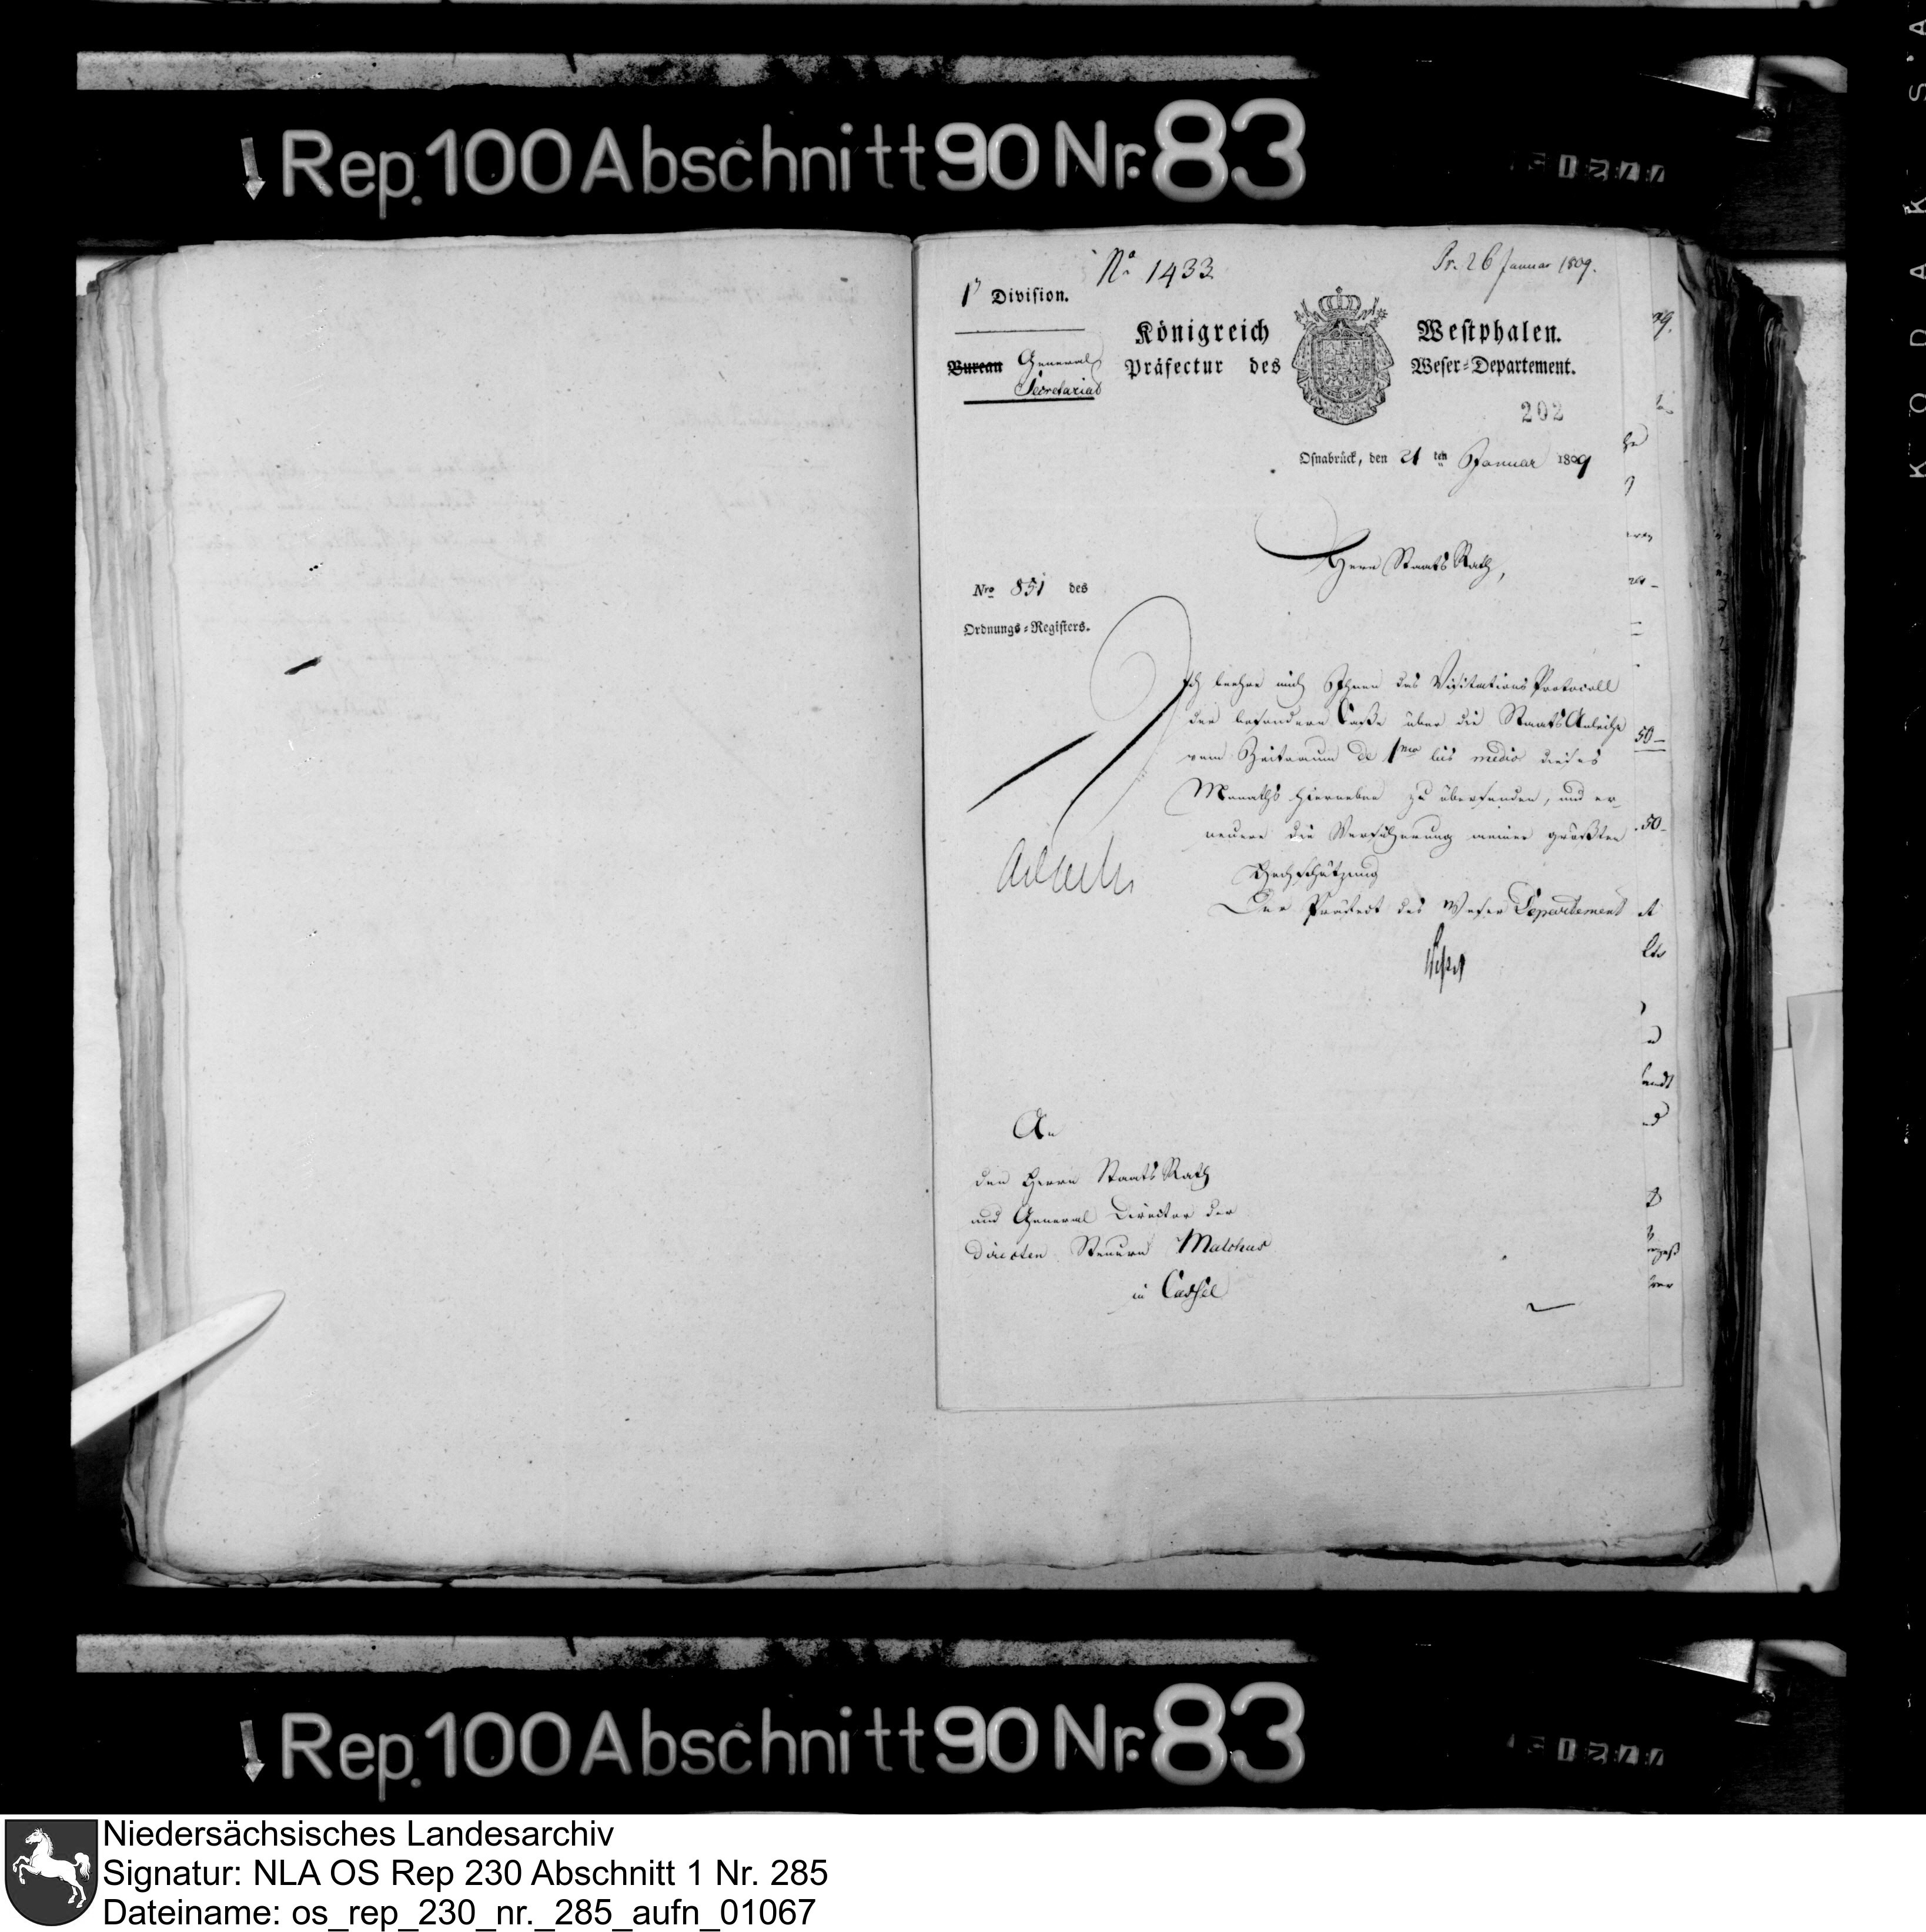 Rep. 100 Abschnitt 90 Nr. 83
No 1433.
Pr. 26 Januar 1809.
1 Division.
Königreich Westphalen.
Bureau General
Secretariat
Präfectur des Weser-Departement.
202
Osnabrück, den 21 ten Januar 1809
Herr Staats Rath,
Nro 851 des
Ordnungs-Registers.
Ich beehre mich Ihnen das Visitations Protocoll
der besondern Casse über die Staats Anleihe
vom Zeitraum de 1mo bis medio dieses
Monaths hierneben zu übersenden, und er-
neuere die Versicherung meiner größten
Hochschätzung
Der Präfect des Weser Departement
An
den Herrn Staats Rath
und General Director der
directen Steuern Malchus
in Cassel
50-
50-
Rep. 100 Abschnitt 90 Nr. 83
Niedersächsisches Landesarchiv
Signatur: NLA OS Rep 230 Abschnitt 1 Nr. 285
Dateiname: os_rep_230_nr._285_aufn_01067
KODAK SA